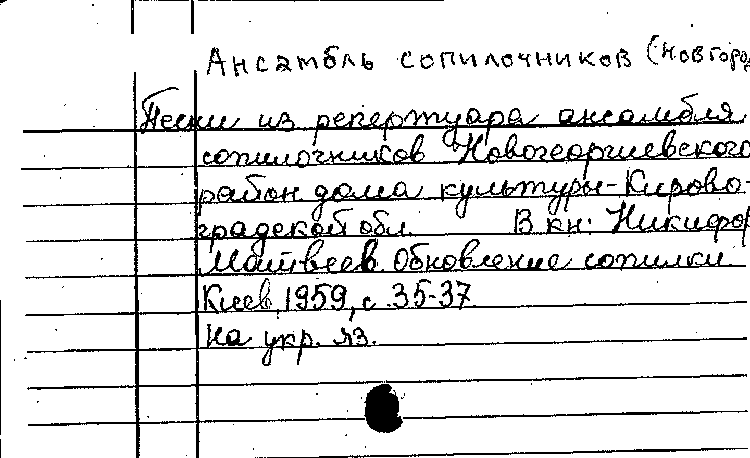 Ансамбль сопилочников (Новгород
Песни из репертуара ансамбля
сопилочников Новогеоргиевского
район. дома культуры-Кирово-
градской обл. В кн: Никифор
Матвеев. Обновление сопилки.
Киев, 1959, с. 35-37
На укр. яз.